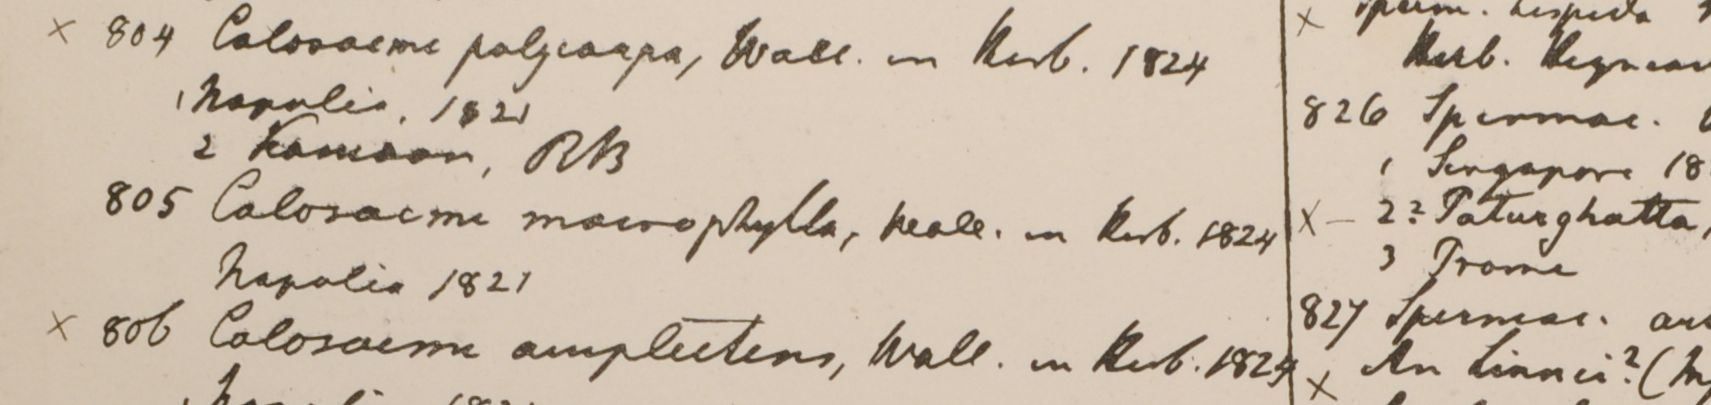 × 804 Colosacme polycarpa, Wall. in Herb. 1824
1 Napalia, 1821
2 Kamaon, RB
805 Colosacme macrophylla, Wall. in Herb. 1824
Napalia 1821
× 806 Colosacme amplectens, Wall. in Herb. 1824
× Sperm. hispida
Herb.
826 Spermac.
1 Singapore 18
× – 2? Paturghatta,
3 Prome
827 Spermac.
× An Linnei? (